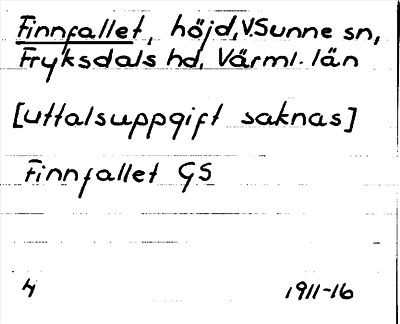 Finnfallet, höjd, V.Sunne sn,
Fryksdals hd, Värml. län
[uttalsuppgift saknas]
Finnfallet GS
1911-16